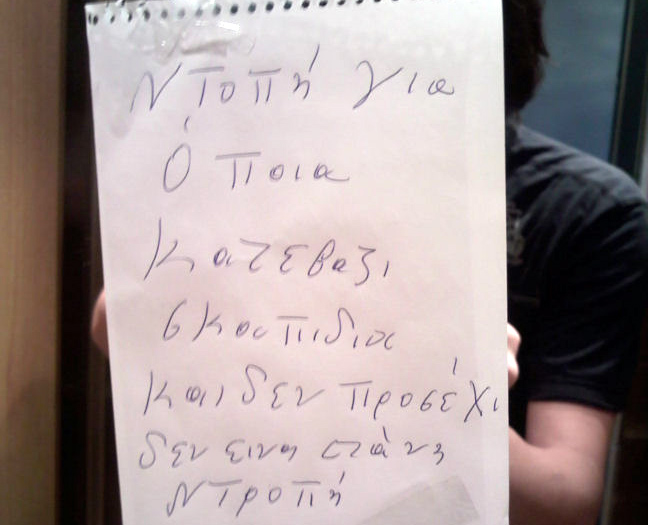 ντοπή για
Ό ποια
κατεβαζι
σκαπιδια
και δεν προσέχι
δεν ειναι στάνη
ντροπή